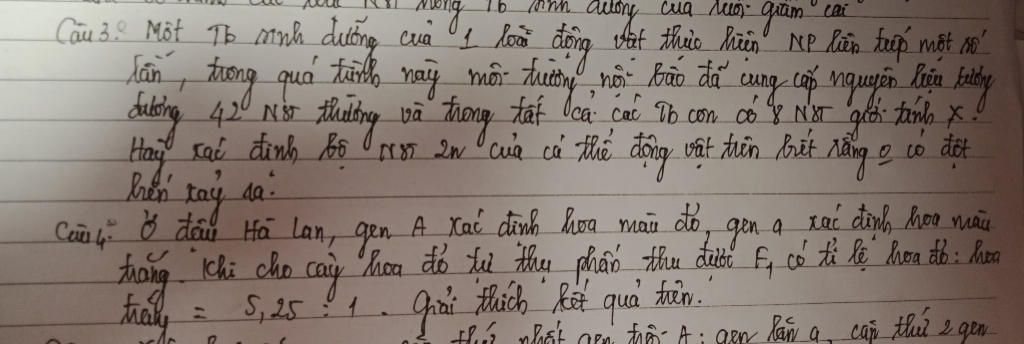 NST trong Tb sinh dưỡng của loài giảm cái
Câu 3: Một Tb sinh dưỡng của 1 loài động vật thực hiện NP liên tiếp một số
lần, trong quá trình này môi trường nội bào đã cung cấp nguyên liệu tương
đương 42 NST thường và trong tất cả các Tb con có 8 NST giới tính X.
Hãy xác định bộ NST 2n của cá thể động vật trên biết rằng o có đột
biến xảy ra.
Câu 4: Ở đậu Hà Lan, gen A xác định hoa màu đỏ, gen a xác định hoa màu
trắng. Khi cho cây hoa đỏ tự thụ phấn thu được F₁ có tỉ lệ hoa đỏ: hoa
trắng = 5,25 : 1. Giải thích kết quả trên.
thứ nhất gen trội A; gen lặn a, cặp thứ 2 gen